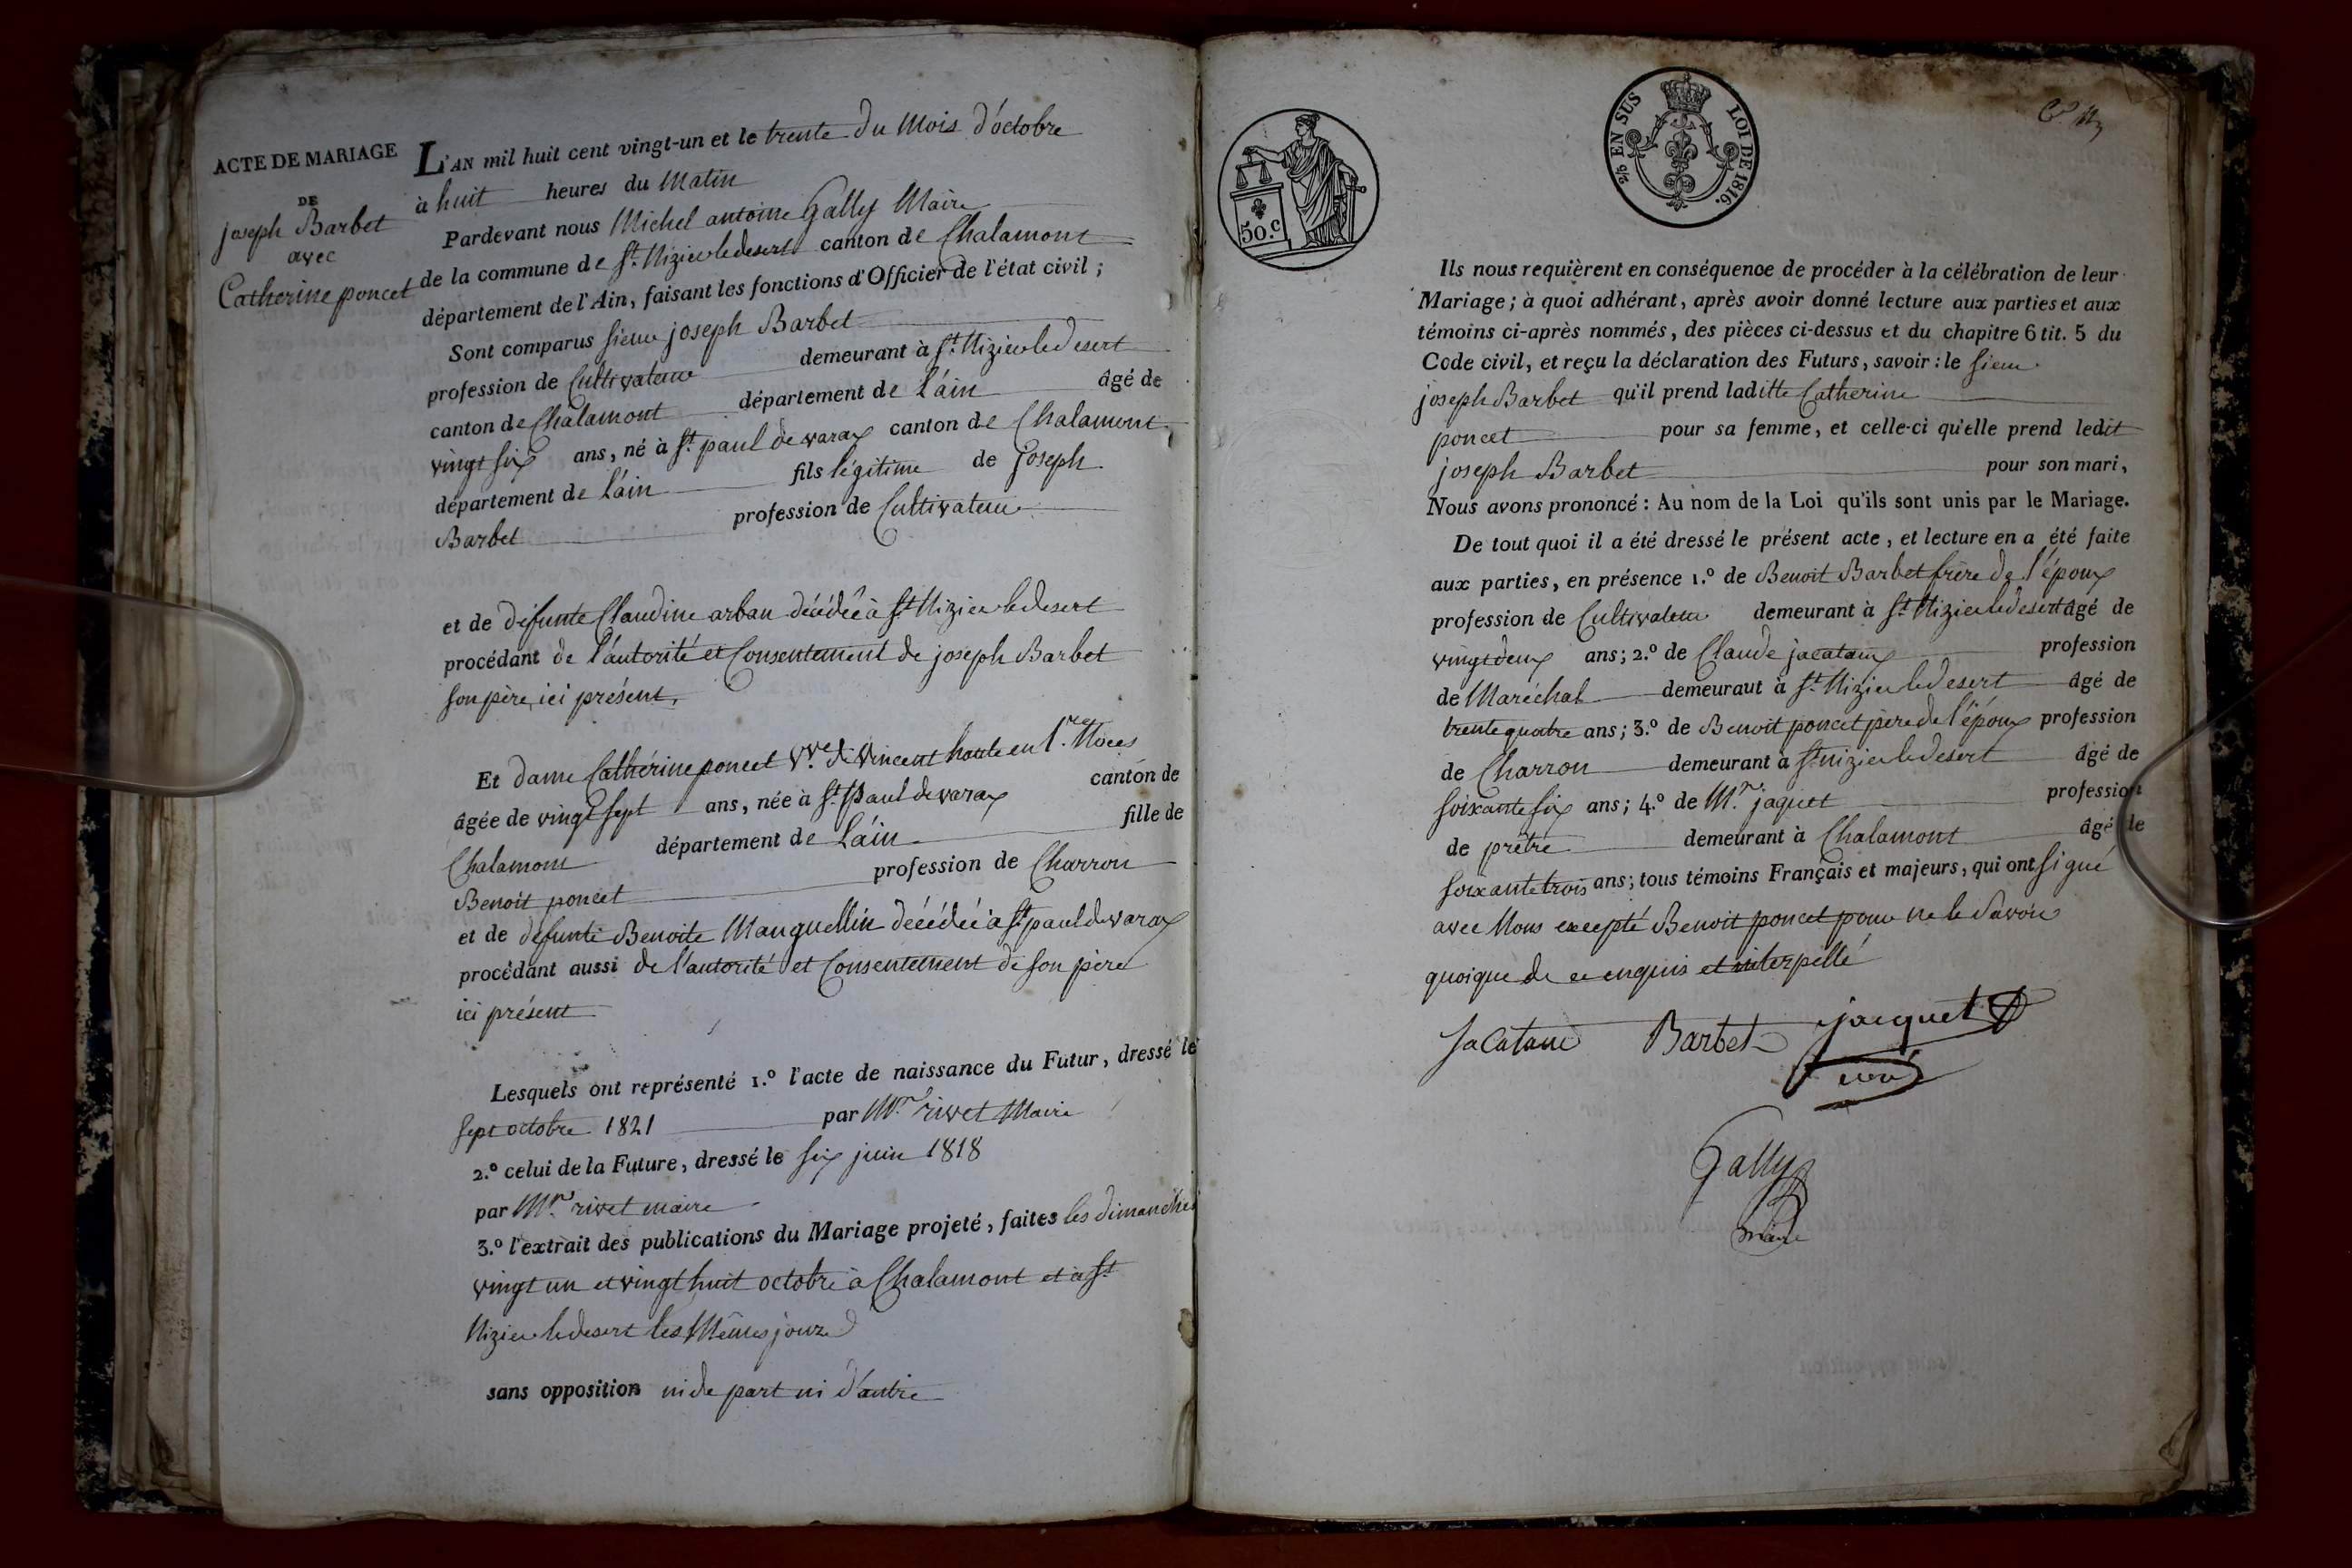 ACTE DE MARIAGE
DE
joseph Barbet
avec
Catherine poncet
L'AN mil huit cent vingt-un et le trente du Mois d'octobre
à huit heures du Matin
Pardevant nous Michel antoine Gally Maire
de la commune de St. Nizier le desert canton de Chalamont
département de l'Ain, faisant les fonctions d'Officier de l'état civil ;
Sont comparus sieur joseph Barbet
profession de Cultivateur demeurant à St. Nizier le desert
canton de Chalamont département de l'ain âgé de
vingt six ans, né à St. paul de varax canton de Chalamont
département de l'ain fils légitime de joseph
Barbet profession de Cultivateur
et de défunte Claudine arban décédée à St Nizier le desert
procédant de l'autorité et Consentement de joseph Barbet
son père, ici présent,
Et dame Cathérine poncet Vve. de Vincent en 1.re Noces
âgée de vingt sept ans, née à St. Paul de varax canton de
Chalamont département de l'ain fille de
Benoit poncet profession de Charron
et de défunte Benoite Manguellin décédée à St paul de varax
procédant aussi de l'autorité et Consentement de son père
ici présent
Lesquels ont représenté 1.º l'acte de naissance du Futur, dressé le
sept octobre 1821 par Mr. rivet Maire
2.º celui de la Future, dressé le six juin 1818
par Mr. rivet maire
3.º l'extrait des publications du Mariage projeté, faites les dimanches
vingt un et vingt huit octobre à Chalamont et à St
Nizier le desert les Mêmes jours
sans opposition ni de part ni d'autre
50.c
2/5 EN SUS LOI DE 1816.
Ils nous requièrent en conséquence de procéder à la célébration de leur
Mariage ; à quoi adhérant, après avoir donné lecture aux parties et aux
témoins ci-après nommés, des pièces ci-dessus et du chapitre 6 tit. 5 du
Code civil, et reçu la déclaration des Futurs, savoir : le sieur
joseph Barbet qu'il prend laditte Catherine
poncet pour sa femme, et celle-ci qu'elle prend ledit
joseph Barbet pour son mari,
Nous avons prononcé : Au nom de la Loi qu'ils sont unis par le Mariage.
De tout quoi il a été dressé le présent acte, et lecture en a été faite
aux parties, en présence 1.º de Benoit Barbet frère de l'époux
profession de Cultivateur demeurant à St. Nizier le desert âgé de
vingt deux ans ; 2.º de Claude jacataux profession
de Maréchal demeurant à St. Nizier le desert âgé de
trente quatre ans ; 3.º de Benoit poncet père de l'époux profession
de Charron demeurant à St nizier le desert âgé de
soixante six ans ; 4.º de Mr. jaquet profession
de prêtre demeurant à Chalamont âgé de
soixante trois ans ; tous témoins Français et majeurs, qui ont signé
avec Nous excepté Benoit poncet pour ne le Savoir
quoique de ce enquis et interpellé
Barbet jacquet
curé
Gally
maire